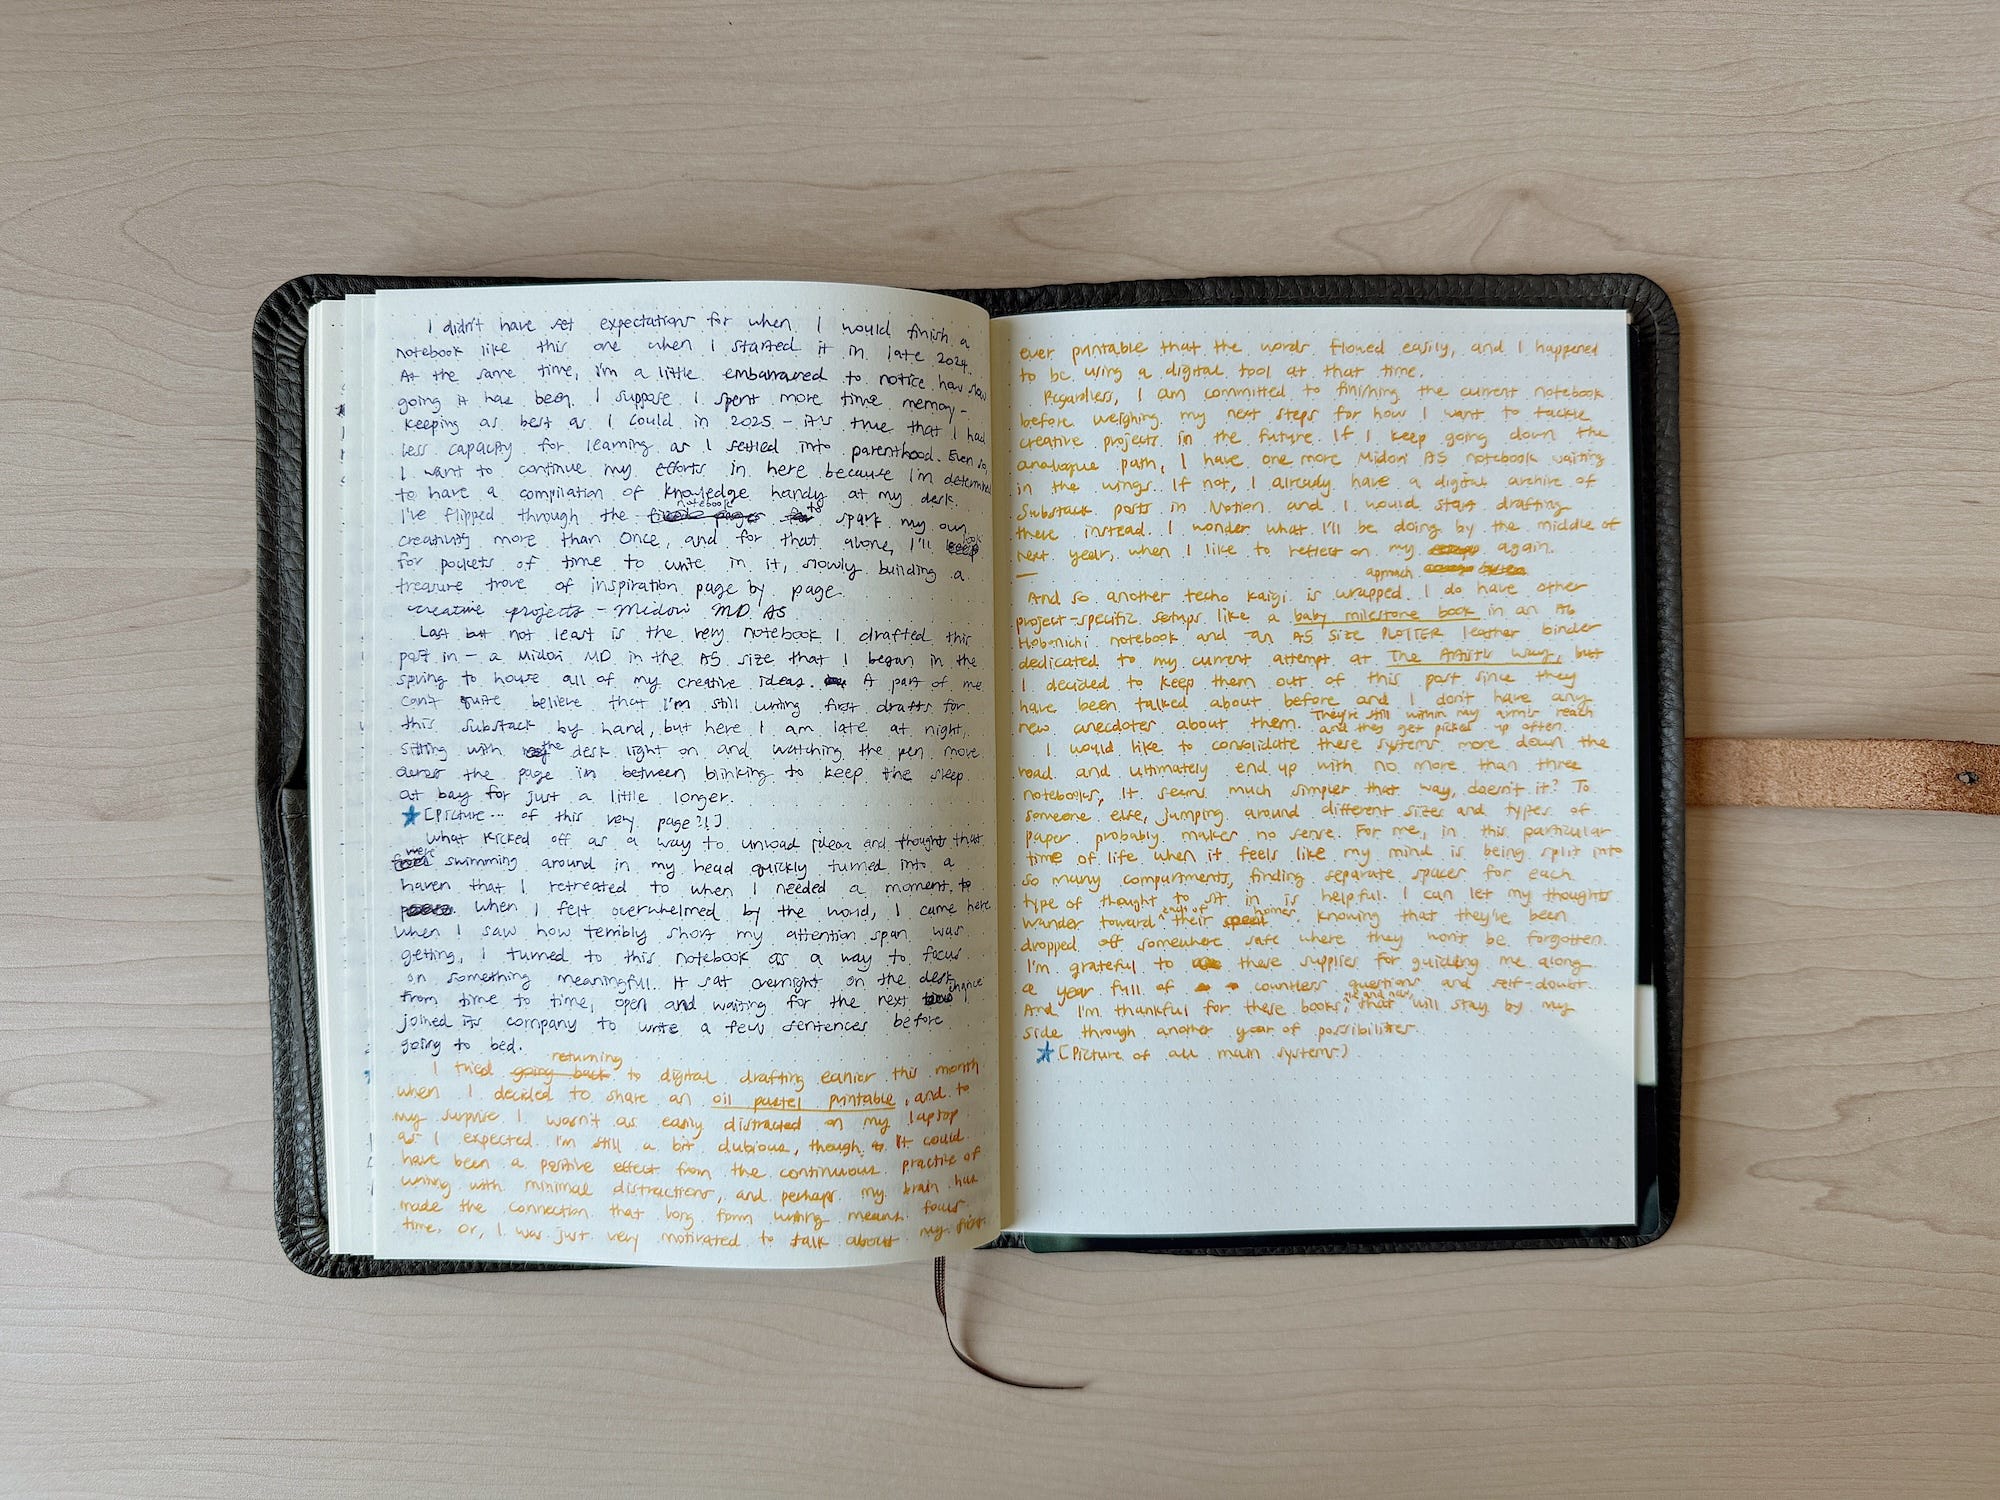 I didn't have set expectations for when I would finish a
notebook like this one when I started it in late 2024.
At the same time, I'm a little embarrassed to notice how slow
going it has been. I suppose I spent more time memory-
keeping as best as I could in 2025 - it's true that I had
less capacity for learning as I settled into parenthood. Even so,
I want to continue my efforts in here because I'm determined
to have a compilation of knowledge handy at my desk.
notebook
I've flipped through the to spark my own
creativity more than once, and for that alone, I'll look
for pockets of time to write in it, slowly building a
treasure trove of inspiration page by page.
creative projects - Midori MD A5
Last but not least is the very notebook I drafted this
post in - a Midori MD in the A5 size that I began in the
spring to house all of my creative ideas. A part of me
can't quite believe that I'm still writing first drafts for
this substack by hand, but here I am late at night,
sitting with the desk light on and watching the pen move
across the page in between blinking to keep the sleep
at bay for just a little longer.
★ [Picture... of this very page?!]
What kicked off as a way to unload ideas and thoughts that
were swimming around in my head quickly turned into a
haven that I retreated to when I needed a moment to
When I felt overwhelmed by the world, I came here.
When I saw how terribly short my attention span was
getting, I turned to this notebook as a way to focus
on something meaningful. It sat overnight on the desk
from time to time, open and waiting for the next chance
joined its company to write a few sentences before
going to bed.
returning
I tried going back to digital drafting earlier this month
when I decided to share an oil pastel printable, and to
my surprise I wasn't as easily distracted on my laptop
as I expected. I'm still a bit dubious, though. It could
have been a positive effect from the continuous practice of
writing with minimal distractions, and perhaps my brain has
made the connection that long form writing means focus
time. Or, I was just very motivated to talk about my first
ever printable that the words flowed easily, and I happened
to be using a digital tool at that time.
Regardless, I am committed to finishing the current notebook
before weighing my next steps for how I want to tackle
creative projects in the future. If I keep going down the
analogue path, I have one more Midori A5 notebook waiting
in the wings. If not, I already have a digital archive of
Substack posts in Notion and I would start drafting
there instead. I wonder what I'll be doing by the middle of
next year, when I like to reflect on my again.
—
approach
And so another techo kaigi is wrapped. I do have other
project-specific setups like a baby milestone book in an A6
Hobonichi notebook and an A5 size PLOTTER leather binder
dedicated to my current attempt at The Artist's Way, but
I decided to keep them out of this post since they
have been talked about before and I don't have any
new anecdotes about them. They're still within my arm's reach
and they get picked up often.
I would like to consolidate these systems more down the
road and ultimately end up with no more than three
notebooks, it seems much simpler that way, doesn't it? To
someone else, jumping around different sizes and types of
paper probably makes no sense. For me, in this particular
time of life when it feels like my mind is being split into
so many compartments, finding separate spaces for each
type of thought to sit in is helpful. I can let my thoughts
wander toward their homes, knowing that they've been
dropped off somewhere safe where they won't be forgotten.
I'm grateful to these supplies for guiding me along
a year full of countless questions and self-doubt.
And I'm thankful for these books, old and new, that will stay by my
side through another year of possibilities.
★ [Picture of all main systems]